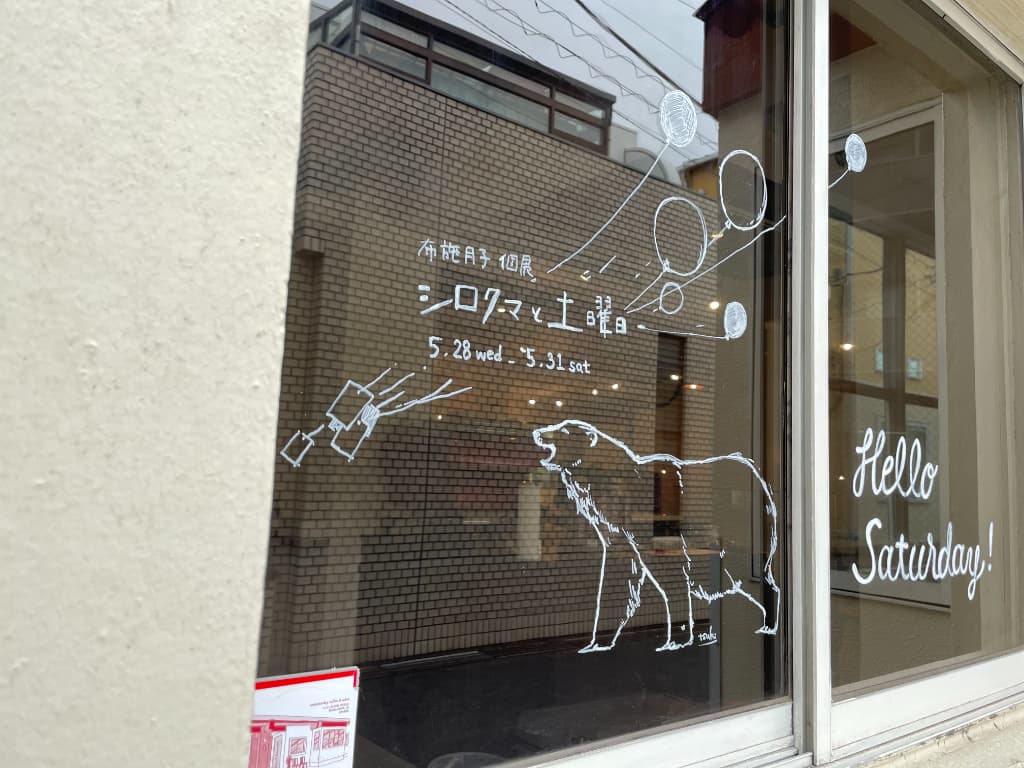 布施月子 個展
シロクマと土曜日
5.28 wed - 5.31 sat
Hello
Saturday!